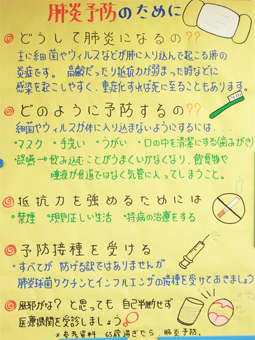 肺炎予防のために
どうして肺炎になるの??
主に細菌やウィルスなどが肺に入り込んで起こる肺の
炎症です。高齢だったり抵抗力が弱まった時などに
感染を起こしやすく、重症化すれば死に至ることもあります。
どのように予防するの??
細菌やウィルスが体に入り込まないようにするには・・・
*マスク *手洗い *うがい *口の中を清潔にする(歯みがき)
*誤嚥→飲み込むことがうまくいかなくなり、飲食物や
唾液が食道ではなく気管に入ってしまうこと。
抵抗力を強めるためには
*禁煙 *規則正しい生活 *持病の治療をする
予防接種を受ける
*すべてが防げる訳ではありませんが
肺炎球菌ワクチンとインフルエンザの接種を受けておきましょう
風邪かな?と思っても自己判断せず
医療機関を受診しましょう
※参考資料 65歳過ぎたら 肺炎予防。